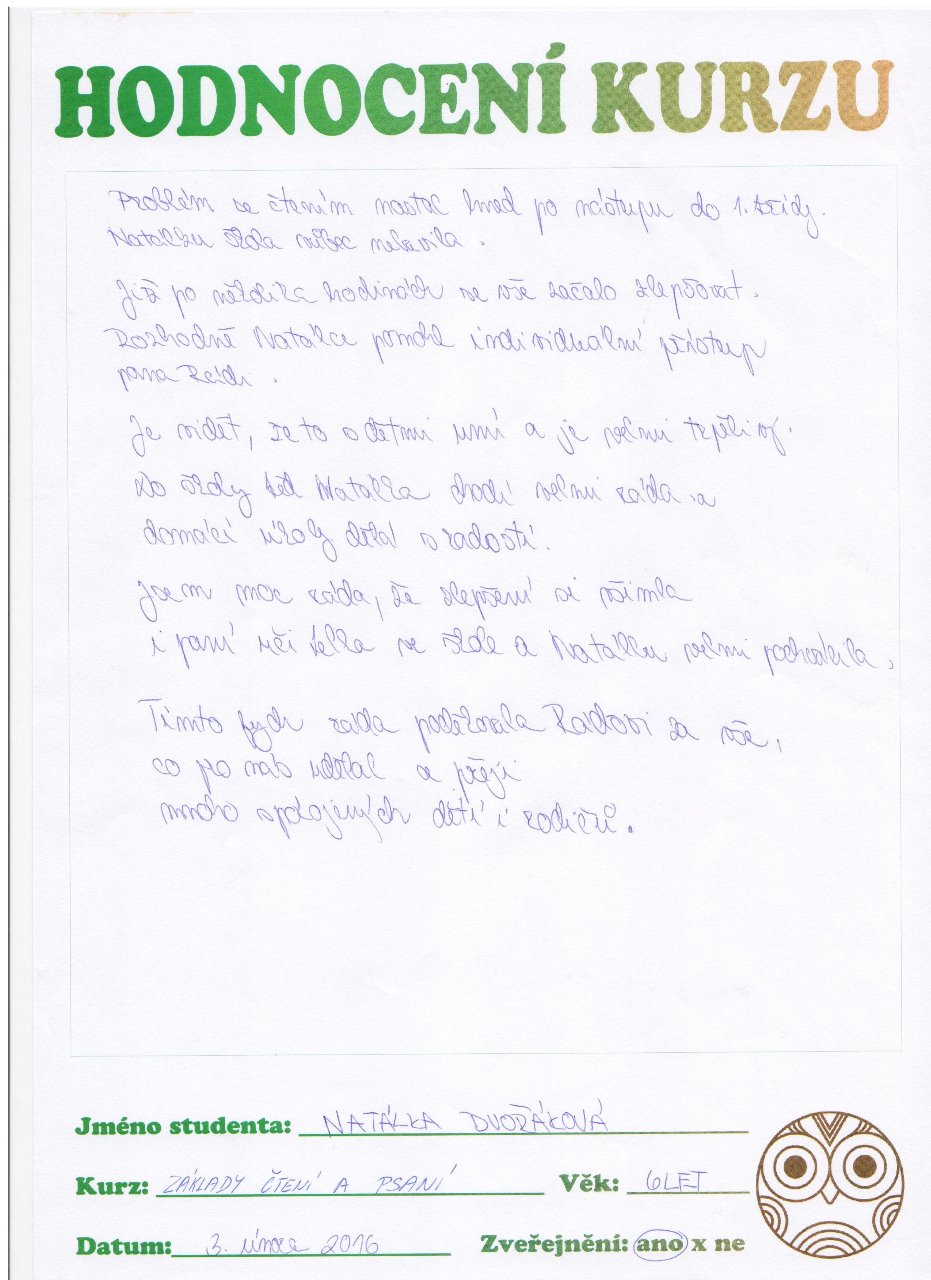 HODNOCENÍ KURZU
Problém se čtením nastal hned po nástupu do 1. třídy.
Natálku škola vůbec nebavila.
Již po několika hodinách se vše začalo zlepšovat.
Rozhodně Natálce pomohl individuální přístup
pana Rádi.
Je vidět, že to s dětmi umí a je velmi trpělivý.
Do školy teď Natálka chodí velmi ráda a
domácí úkoly dělá s radostí.
Jsem moc ráda, že zlepšení si všimla
i paní učitelka ve škole a Natálku velmi pochválila.
Tímto bych ráda poděkovala Radovi za vše,
co pro nás udělal a přeji
mnoho spokojených dětí i rodičů.
Jméno studenta: NATÁLKA DVOŘÁKOVÁ
Kurz: ZÁKLADY ČTENÍ A PSANÍ Věk: 6 LET
Datum: 3. února 2016 Zveřejnění: ano x ne